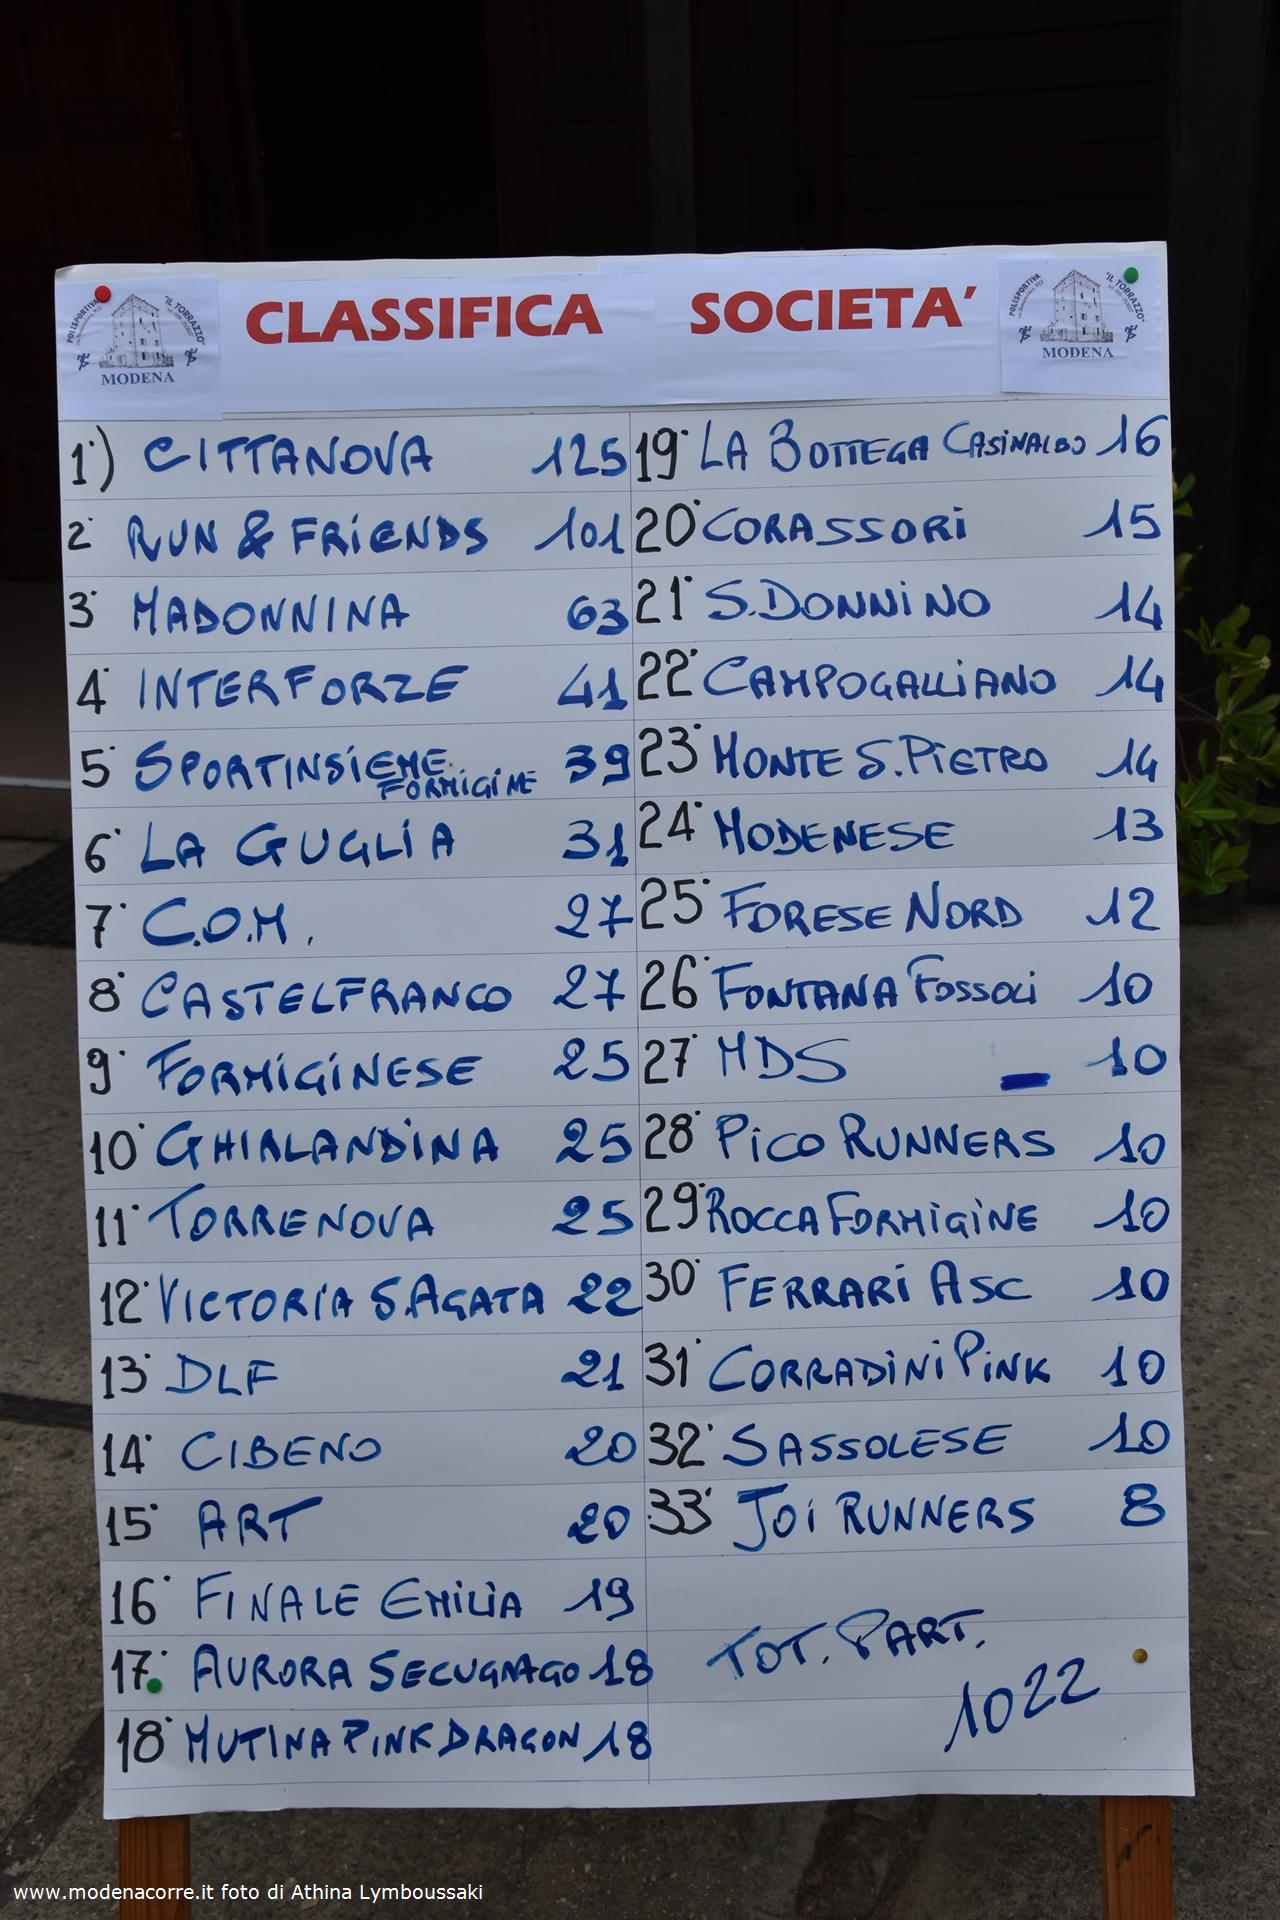 CLASSIFICA SOCIETA'
POLISPORTIVA "IL TORRAZZO"
MODENA
POLISPORTIVA "IL TORRAZZO"
MODENA
1°) CITTANOVA 125
2° RUN & FRiENDS 101
3° MADONNINA 63
4° INTERFORZE 41
5° SPORTINSiEME FORMIGINE 39
6° LA GUGLiA 31
7° C.O.M. 27
8° CASTELFRANCO 27
9° FORMiGiNESE 25
10° GHIRLANDiNA 25
11° TORRENOVA 25
12° VICTORiA S.AGATA 22
13° DLF 21
14° CIBENO 20
15° ART 20
16° FINALE EMILiA 19
17° AURORA SECUGNAGO 18
18° MUTINA PINK DRAGON 18
19° LA BOTTEGA CASINALBO 16
20° CORASSORi 15
21° S.DONNiNO 14
22° CAMPOGALLiANO 14
23° MONTE S.PiETRO 14
24° MODENESE 13
25° FORESE NORD 12
26° FONTANA FOSSOLi 10
27° MDS 10
28° PiCO RUNNERS 10
29° ROCCA FORMIGiNE 10
30° FERRARi ASC 10
31° CORRADiNi PiNK 10
32° SASSOLESE 10
33° JOi RUNNERS 8
TOT. PART.
1022
www.modenacorre.it foto di Athina Lymboussaki